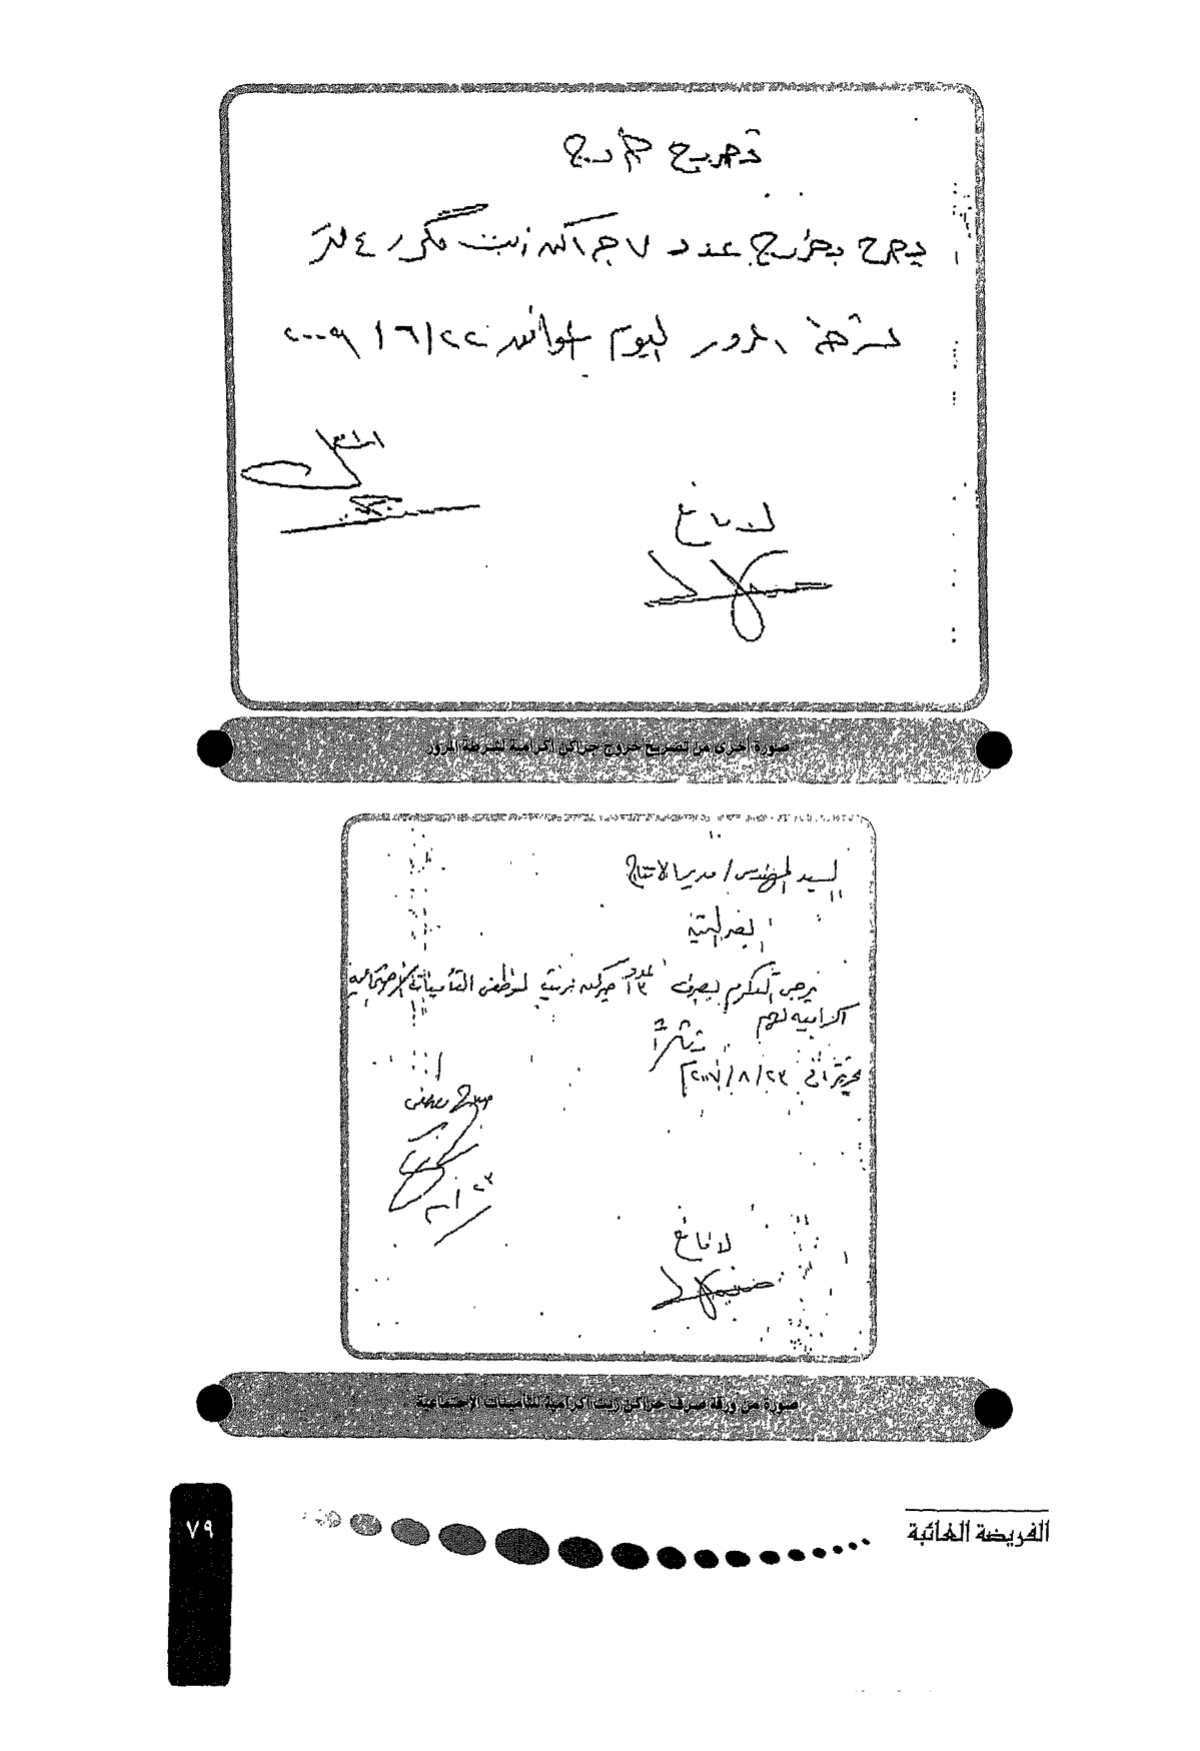 تصريح خروج
يصرح بخروج عدد ٧ جراكن زيت مكرر ٤ لتر
لشرطة المرور اليوم الموافق ٢٢/٦/٢٠٠٩
لا مانع
صورة أخرى من تصريح خروج جراكن إكرامية لشرطة المرور
السيد المهندس/ مدير الانتاج
بعد التحية
يرجى التكرم بصرف عدد ١٣ جركن زيت لموظفى التأمينات الاجتماعية
اكرامية لهم
شكراً
تحريراً في ٢٣/٨/٢٠٠٧م
لا مانع
صورة من ورقة صرف جراكن زيت اكرامية للتأمينات الإجتماعية
الفريضة الغائبة
٧٩